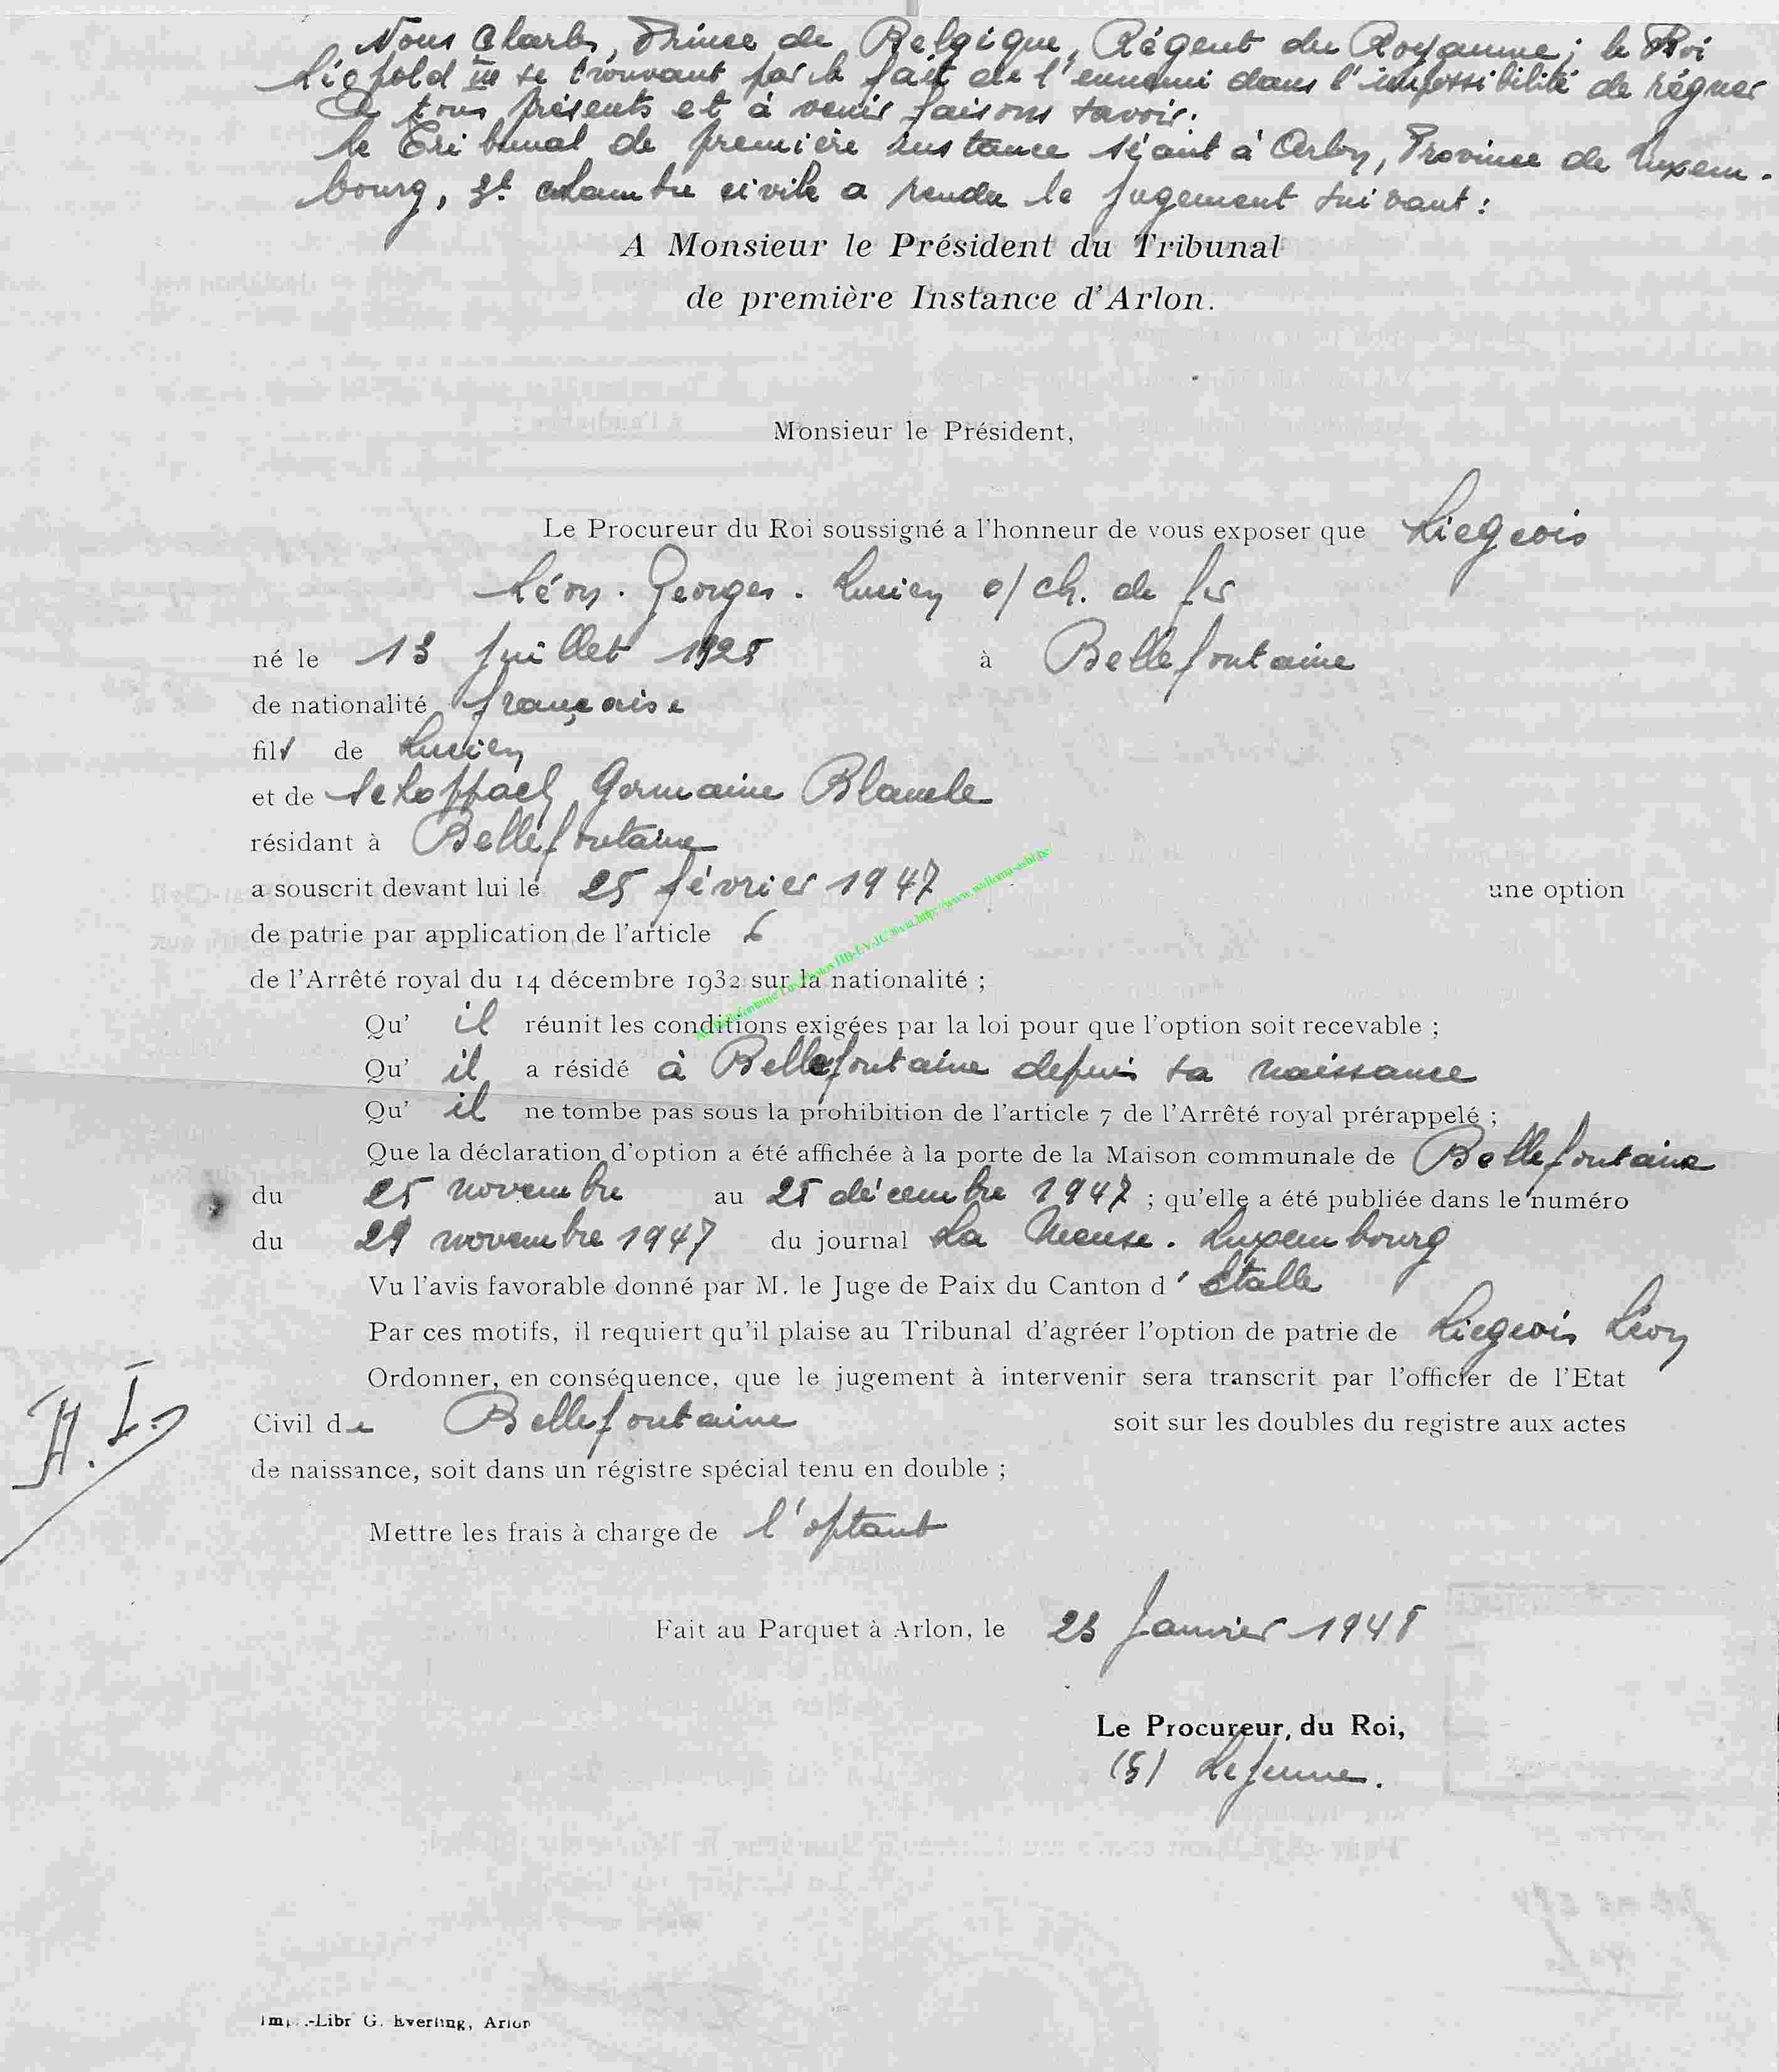 Nous Charles, Prince de Belgique, Régent du Royaume; le Roi
Léopold III se trouvant par le fait de l'ennemi dans l'impossibilité de régner
A tous présents et à venir faisons savoir:
Le Tribunal de première instance séant à Arlon, Province de Luxem-
bourg, 3e chambre civile a rendu le jugement suivant:
A Monsieur le Président du Tribunal
de première Instance d'Arlon.
Monsieur le Président,
Le Procureur du Roi soussigné a l'honneur de vous exposer que Liegeois
Léon. Georges. Lucien o/ ch. de fer
né le 13 juillet 1928 à Bellefontaine
de nationalité française
fils de Lucien
et de Germaine Blanche
résidant à Bellefontaine
a souscrit devant lui le 25 février 1947 une option
de patrie par application de l'article 6
de l'Arrêté royal du 14 décembre 1932 sur la nationalité ;
Qu' il réunit les conditions exigées par la loi pour que l'option soit recevable ;
Qu' il a résidé à Bellefontaine depuis sa naissance
Qu' il ne tombe pas sous la prohibition de l'article 7 de l'Arrêté royal prérappelé ;
Que la déclaration d'option a été affichée à la porte de la Maison communale de Bellefontaine
du 25 novembre au 25 décembre 1947 ; qu'elle a été publiée dans le numéro
du 29 novembre 1947 du journal La Meuse. Luxembourg
Vu l'avis favorable donné par M. le Juge de Paix du Canton d' Etalle
Par ces motifs, il requiert qu'il plaise au Tribunal d'agréer l'option de patrie de Liegeois Léon
Ordonner, en conséquence, que le jugement à intervenir sera transcrit par l'officier de l'Etat
Civil de Bellefontaine soit sur les doubles du registre aux actes
de naissance, soit dans un régistre spécial tenu en double ;
Mettre les frais à charge de l'optant
Fait au Parquet à Arlon, le 23 Janvier 1948
Le Procureur, du Roi,
(s) Lejeune.
Imp.-Libr G. Everling, Arlon